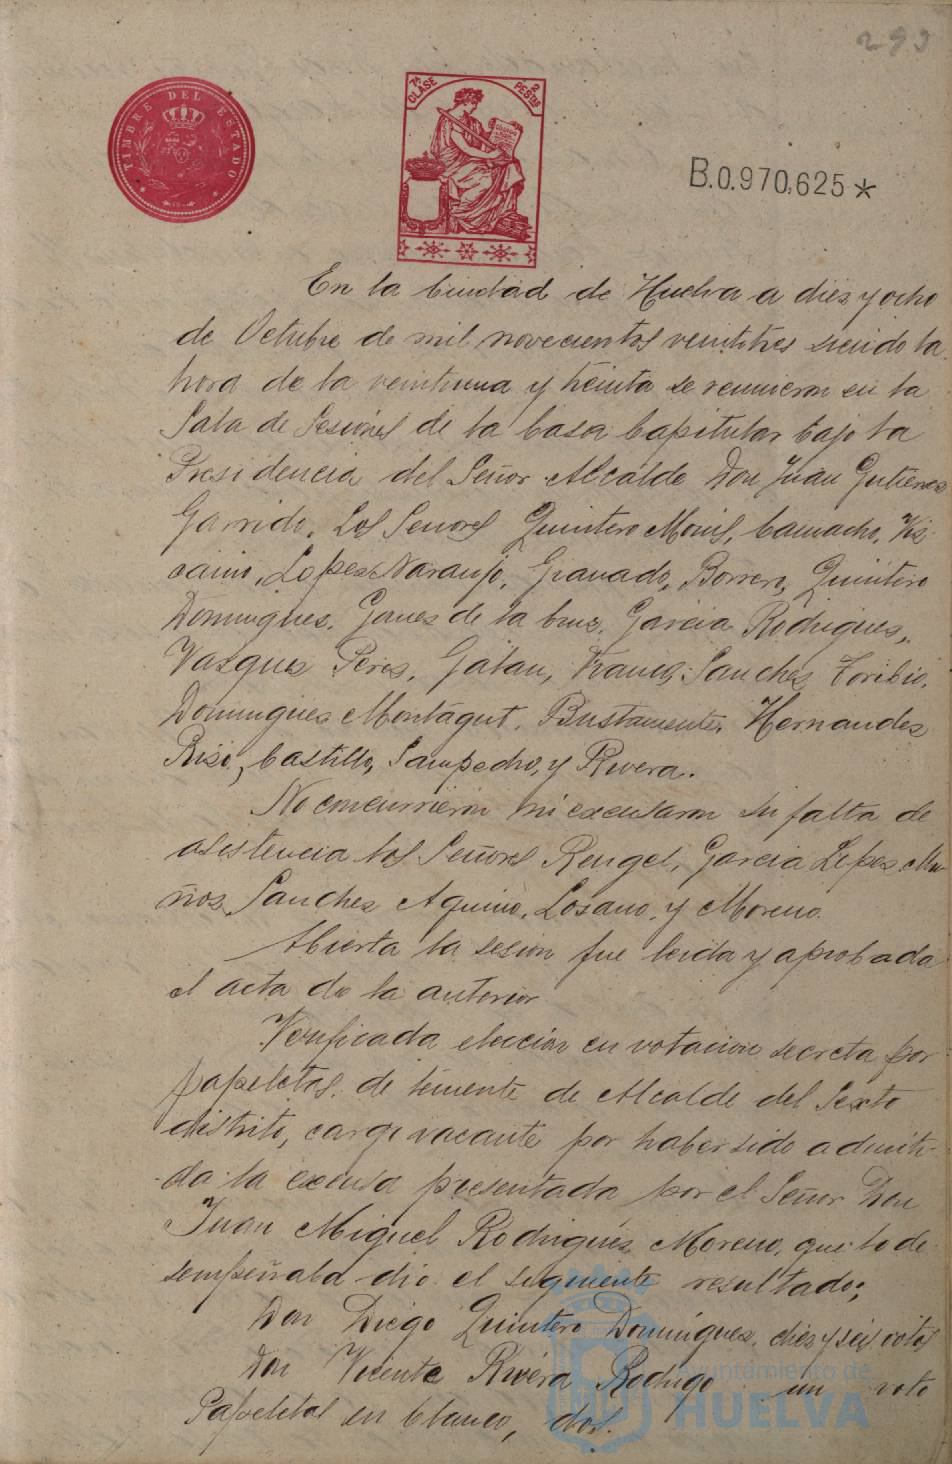 293
TIMBRE DEL ESTADO
7ª CLASE
2 PESTAS
B.0.970.625*
En la Ciudad de Huelva a diez y ocho
de Octubre de mil novecientos veintitres siendo la
hora de la veintiuna y treinta se reunieron en la
Sala de Sesiones de la Casa Capitular bajo la
Presidencia del Señor Alcalde Don Juan Gutierrez
Garrido, Los Señores Quintero Monis, Camacho, Viz-
caino, Lopez Naranjo, Granado, Borrero, Quintero
Dominguez, Garces de la Cruz, Garcia Rodriguez,
Vazquez Perez, Galan, Franco, Sanchez Toribio,
Dominguez Montagut, Bustamente, Hernandez
Riso, Castillo, Sampedro, y Rivera.
No concurrieron ni excusaron su falta de
asistencia los Señores Rengel, Garcia Lopez, Mu-
ñoz, Sanchez Aquino, Losano, y Moreno.
Abierta la sesion fue leida y aprobada
el acta de la anterior
Verificada eleccion en votacion secreta por
papeletas, de teniente de Alcalde del Sexto
distrito, cargo vacante por haber sido admiti-
da la excusa presentada por el Señor Don
Juan Miguel Rodriguez Moreno, que lo de-
sempeñaba dio el siguiente resultado;
Don Diego Quintero Dominguez, diez y seis votos
Don Vicente Rivera Rodrigo un voto
Papeletas en blanco, dos.
ayuntamiento de
HUELVA